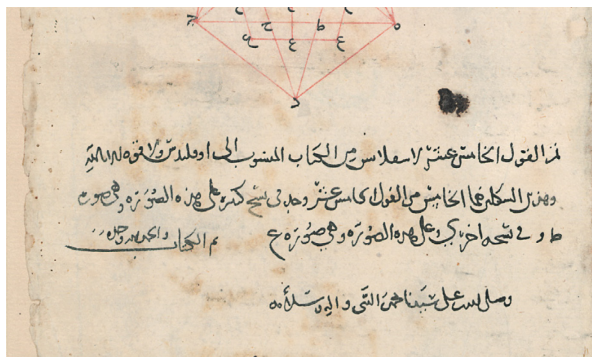 ع ع ع
د
تم القول الخامس عشر لاسقلاس من الكتاب المنسوب الى اوقليدس ولا قوه الا بالله
وهذين الشكلين هما الخامس من القول الخامس عشر وجد في نسخ كثيره على هذه الصوره وهي صوره
ط و في نسخه اخرى وعلى هذه الصوره وهي صوره ع تم الكتاب والحمد لله وحده
وصلى الله على سيدنا محمد النبي واله وسلامه